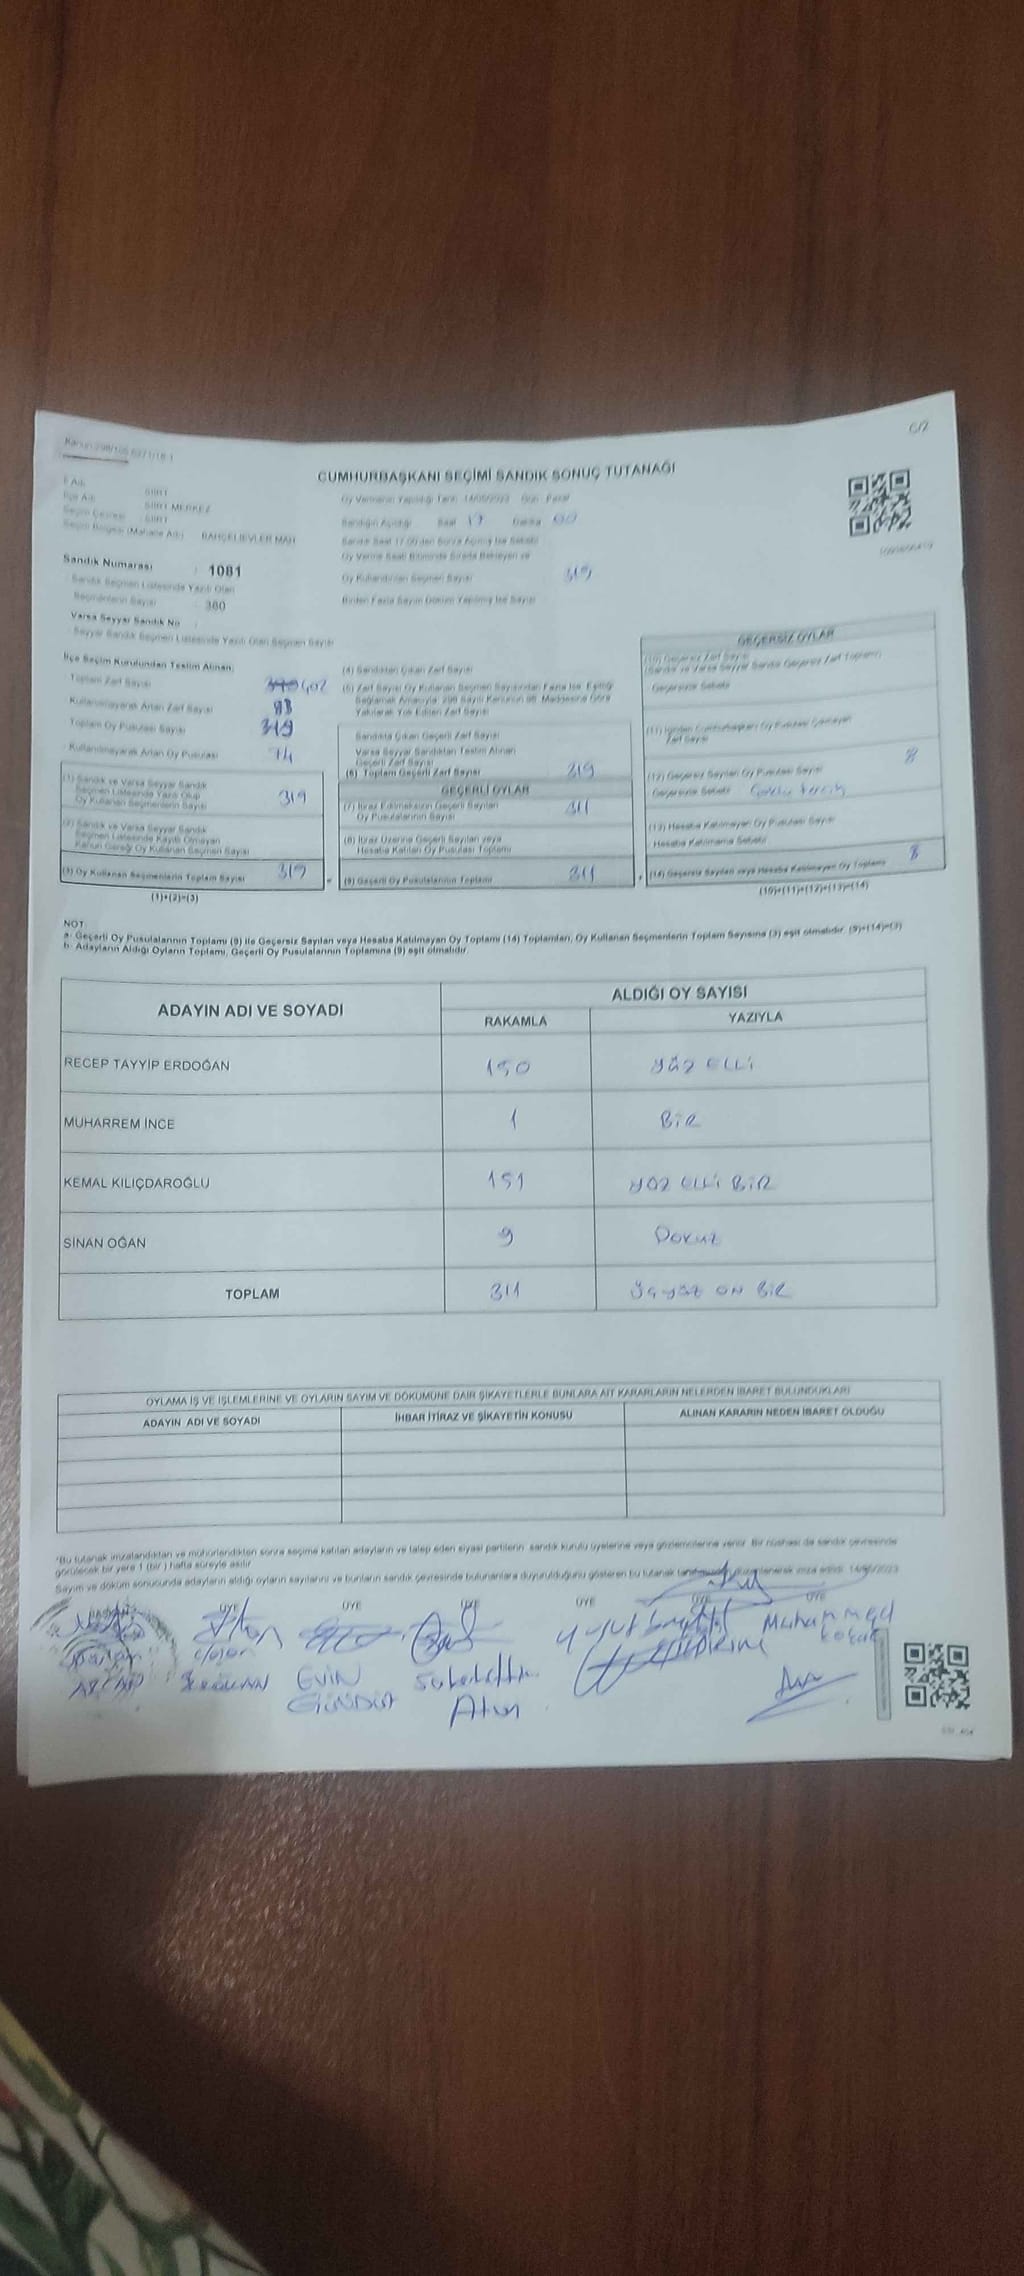 C/2
CUMHURBAŞKANI SEÇİMİ SANDIK SONUÇ TUTANAĞI
İl Adı : SİİRT
İlçe Adı : SİİRT MERKEZ
Seçim Çevresi : SİİRT
Seçim Bölgesi (Mahalle Adı) : BAHÇELİEVLER MAH
Oy Vermenin Yapıldığı Tarih : 14/05/2023 Gün : Pazar
Sandığın Açıldığı Saat 17 Dakika 00
Sandık Saat 17.00'den Sonra Açılmış İse Sebebi
Oy Verme Saati Bitiminde Sırada Bekleyen ve
Oy Kullandırılan Seçmen Sayısı 319
Birden Fazla Sayım Döküm Yapılmış İse Sayısı
Sandık Numarası : 1081
Sandık Seçmen Listesinde Yazılı Olan
Seçmenlerin Sayısı : 380
Varsa Seyyar Sandık No :
Seyyar Sandık Seçmen Listesinde Yazılı Olan Seçmen Sayısı
İlçe Seçim Kurulundan Teslim Alınan:
Toplam Zarf Sayısı 402
Kullanılmayarak Artan Zarf Sayısı 83
Toplam Oy Pusulası Sayısı 319
Kullanılmayarak Artan Oy Pusulası 74
(1) Sandık ve Varsa Seyyar Sandık
Seçmen Listesinde Yazılı Olup
Oy Kullanan Seçmenlerin Sayısı 319
(2) Sandık ve Varsa Seyyar Sandık
Seçmen Listesinde Kayıtlı Olmayan
Kanun Gereği Oy Kullanan Seçmen Sayısı
(3) Oy Kullanan Seçmenlerin Toplam Sayısı 319
(1)+(2)=(3)
(4) Sandıktan Çıkan Zarf Sayısı
(5) Zarf Sayısı Oy Kullanan Seçmen Sayısından Fazla İse, Eşitliği
Sağlamak Amacıyla, 298 Sayılı Kanunun 98. Maddesine Göre
Yakılarak Yok Edilen Zarf Sayısı
Sandıkta Çıkan Geçerli Zarf Sayısı
Varsa Seyyar Sandıktan Teslim Alınan
Geçerli Zarf Sayısı
(6) Toplam Geçerli Zarf Sayısı 319
GEÇERLİ OYLAR
(7) İtiraz Edilmeksizin Geçerli Sayılan
Oy Pusulalarının Sayısı 311
(8) İtiraz Üzerine Geçerli Sayılan veya
Hesaba Katılan Oy Pusulası Toplamı
(9) Geçerli Oy Pusulalarının Toplamı 311
GEÇERSİZ OYLAR
(10) Geçersiz Zarf Sayısı
(Sandık ve Varsa Seyyar Sandık Geçersiz Zarf Toplamı)
Geçersizlik Sebebi
(11) İçinden Cumhurbaşkanı Oy Pusulası Çıkmayan
Zarf Sayısı
(12) Geçersiz Sayılan Oy Pusulası Sayısı 8
Geçersizlik Sebebi
(13) Hesaba Katılmayan Oy Pusulası Sayısı
Hesaba Katılmama Sebebi
(14) Geçersiz Sayılan veya Hesaba Katılmayan Oy Toplamı 8
(10)+(11)+(12)+(13)=(14)
NOT:
a- Geçerli Oy Pusulalarının Toplamı (9) ile Geçersiz Sayılan veya Hesaba Katılmayan Oy Toplamı (14) Toplamları, Oy Kullanan Seçmenlerin Toplam Sayısına (3) eşit olmalıdır. (9)+(14)=(3)
b- Adayların Aldığı Oyların Toplamı, Geçerli Oy Pusulalarının Toplamına (9) eşit olmalıdır.
ADAYIN ADI VE SOYADI ALDIĞI OY SAYISI
RAKAMLA YAZIYLA
RECEP TAYYİP ERDOĞAN 150 YÜZ ELLİ
MUHARREM İNCE 1 BİR
KEMAL KILIÇDAROĞLU 151 YÜZ ELLİ BİR
SİNAN OĞAN 9 DOKUZ
TOPLAM 311 ÜÇYÜZ ON BİR
OYLAMA İŞ VE İŞLEMLERİNE VE OYLARIN SAYIM VE DÖKÜMÜNE DAİR ŞİKAYETLERLE BUNLARA AİT KARARLARIN NELERDEN İBARET BULUNDUKLARI
ADAYIN ADI VE SOYADI İHBAR İTİRAZ VE ŞİKAYETİN KONUSU ALINAN KARARIN NEDEN İBARET OLDUĞU
*Bu tutanak imzalandıktan ve mühürlendikten sonra seçime katılan adayların ve talep eden siyasi partilerin sandık kurulu üyelerine veya gözlemcilerine verilir. Bir nüshası da sandık çevresinde
görülecek bir yere 1 (bir) hafta süreyle asılır.
Sayım ve döküm sonucunda adayların aldığı oyların sayılarını ve bunların sandık çevresinde bulunanlara duyurulduğunu gösteren bu tutanak düzenlenerek imza edildi. 14/05/2023
ÜYE ÜYE ÜYE ÜYE ÜYE ÜYE
EVİN
GÜNDÜZ
Atun
YILDIRIM
Muhammed